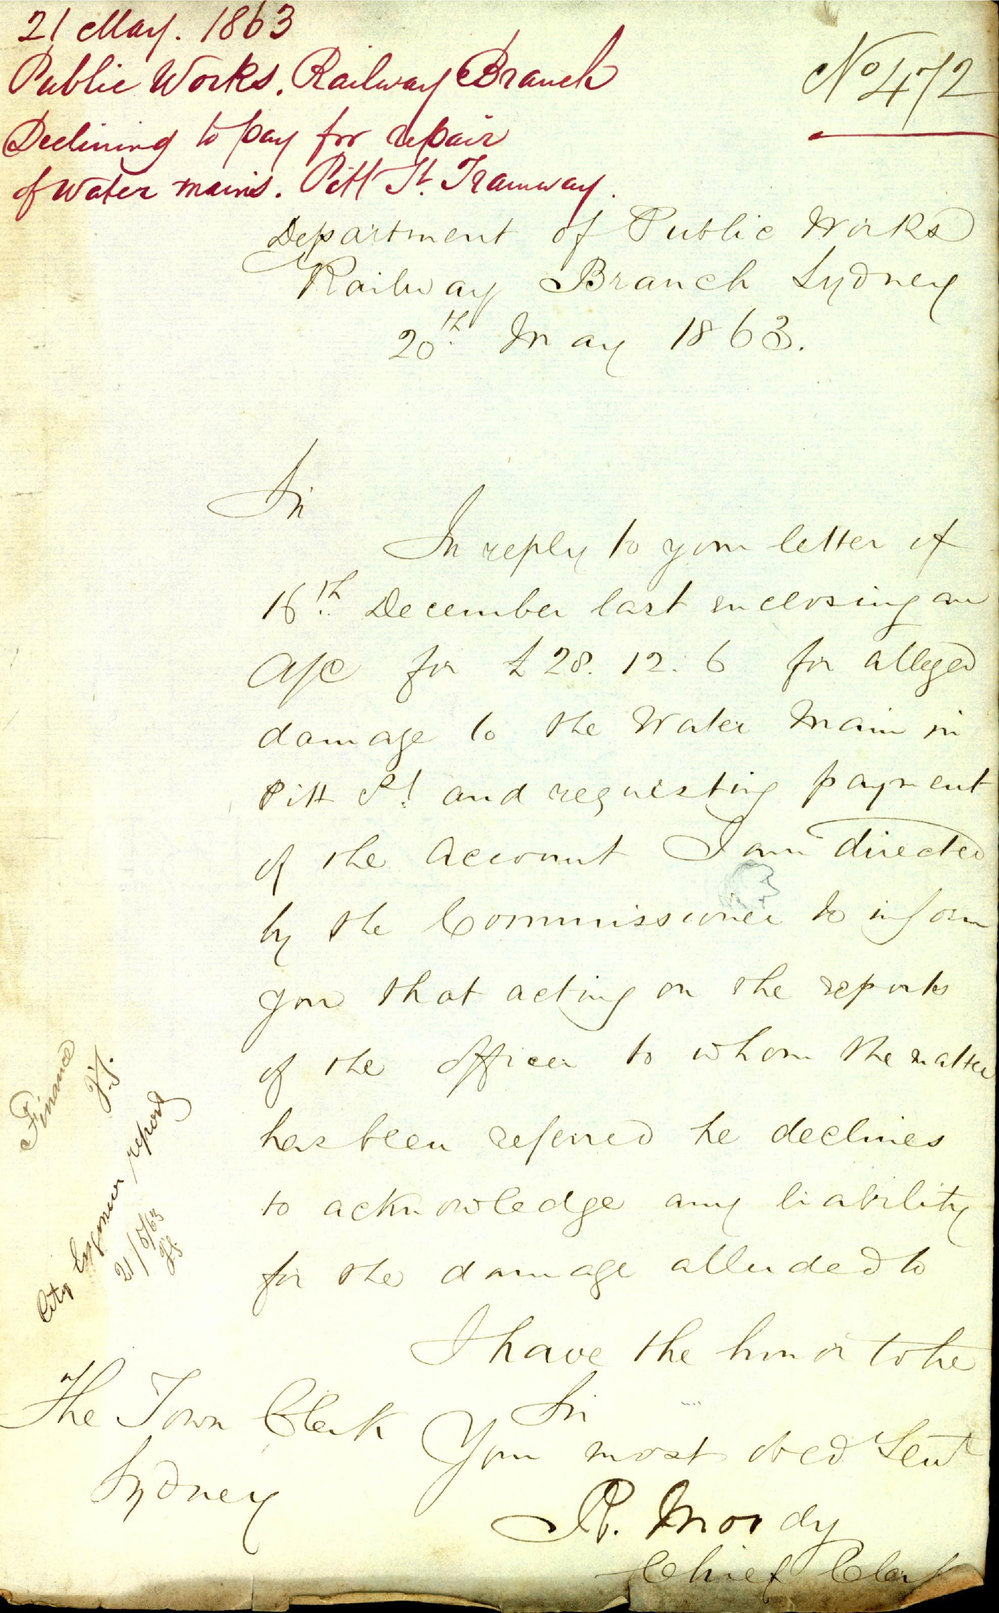 21 May. 1863
Public Works. Railway Branch
Declining to pay for repair
of water mains. Pitt St. Tramway.
No 472
Department of Public Works
Railway Branch Sydney
20th May 1863.
Sir
In reply to your letter of
16th December last enclosing an
A/c for £28.12.6 for alleged
damage to the Water Main in
Pitt St. and requesting payment
of the Account I am directed
by the Commissioner to inform
you that acting on the reports
of the Officer to whom the matter
has been referred he declines
to acknowledge any liability
for the damage alluded to
I have the honor to be
Sir
Your most obed Servt
R. Moody
Chief Clerk
The Town Clerk
Sydney
Finance
City Engineer report
21/5/63